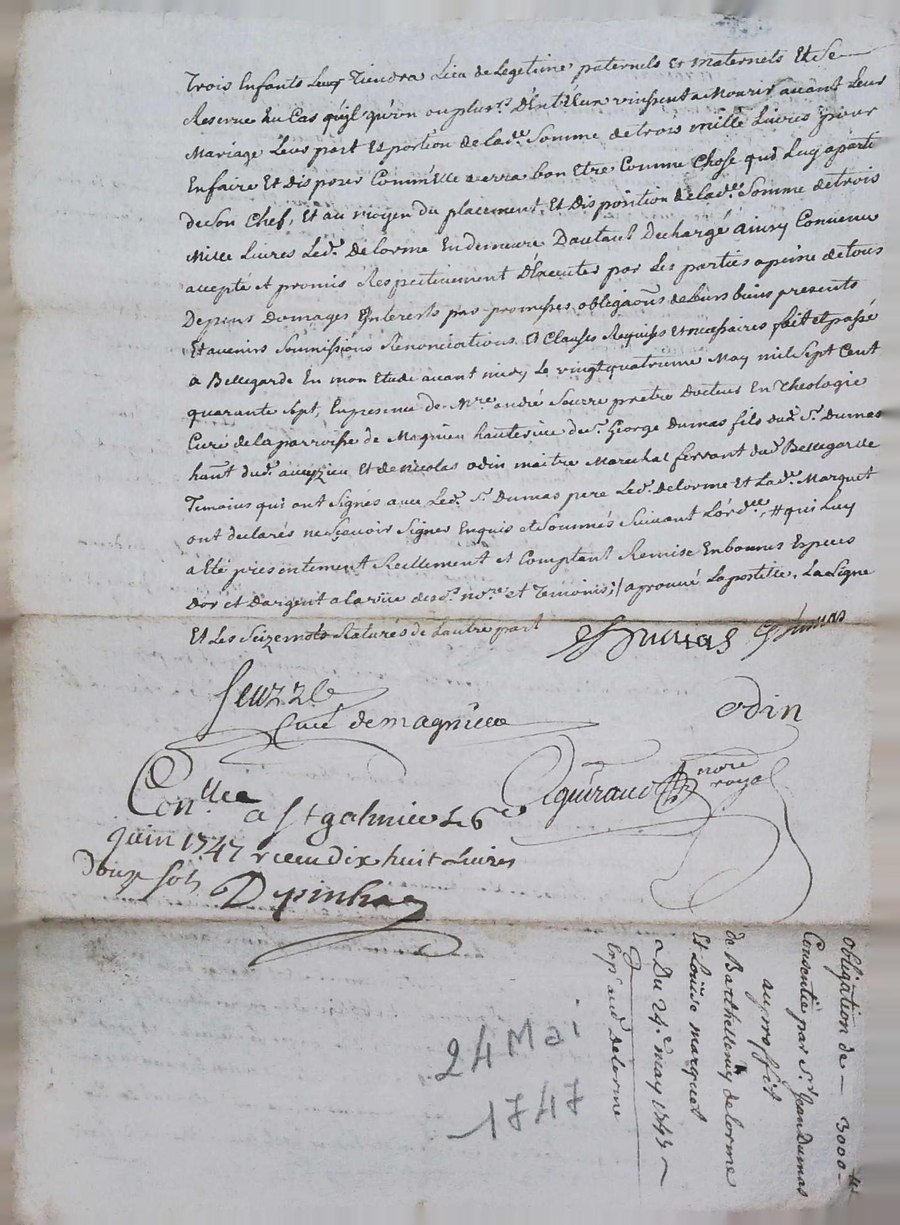 trois Enfants Leurs Tiendra Lieu de Legetime paternels Et maternels Et Se
Reserve Au Cas qu'un ou plurs. D'Entr'eux vinssent a Mourir avant Leur
Mariage Leur part Et portion de lade. Somme de trois mille Livres pour
En faire Et disposer Comm'Elle verra bon Etre Comme Chose qui Luy aparti
de Son Chef, Et au moyen du placement, Et disposition de lade. Somme de trois
Mille Livres Led. Delorme En demeure D'autant Dechargé ainsy Convenu
accepté et promis Respectivement D'Executer par Les parties a peine de tous
Depens Domages Interests par promesses obligaons. de Leurs biens presents
Et avenirs Soumissions Renonciations Et Clauses Requises Et necessaires fait et passé
a Bellegarde En mon Etude avant midy Le vingt quatrieme May mil Sept Cent
quarante Sept, En presence de Mre. andré prêtre Docteur En Theologie
Curé de la parroisse de Magnieu hauterive de Sr. George Dumas fils dud. Sr. Dumas
hant. dud. Et de nicolas odin maitre Marechal ferrant dud. Bellegarde
Temoins qui ont Signés avec Led. Sr. Dumas pere Led. Delorme Et Lade. Marquet
ont declarés ne Sçavoir Signer Enquis et Sommés Suivant L'ordce. # qui Luy
a Eté presentement Reellement et Comptant Remise En bonnes Especes
d'or et d'argent a la vüe desd. nore. et Temoins ;/ aprouvé La postille, La Ligne
Et Les Seize mots Raturés de L'autre part
Dumas G Dumas
Curé de magnieu
odin
guiraud nore royal
Conllee a St galmier Le 6e
juin 1747 receu dix huit Livres
douze Sols Depinhac
obligation de — 3000 ltt —
Consentie par Sr. Jean Dumas
au proffit
de Barthellemy delorme
Et Loüise marquet
a Du 24e may 1747 ~
Exp. aud Delorme
24 Mai
1747